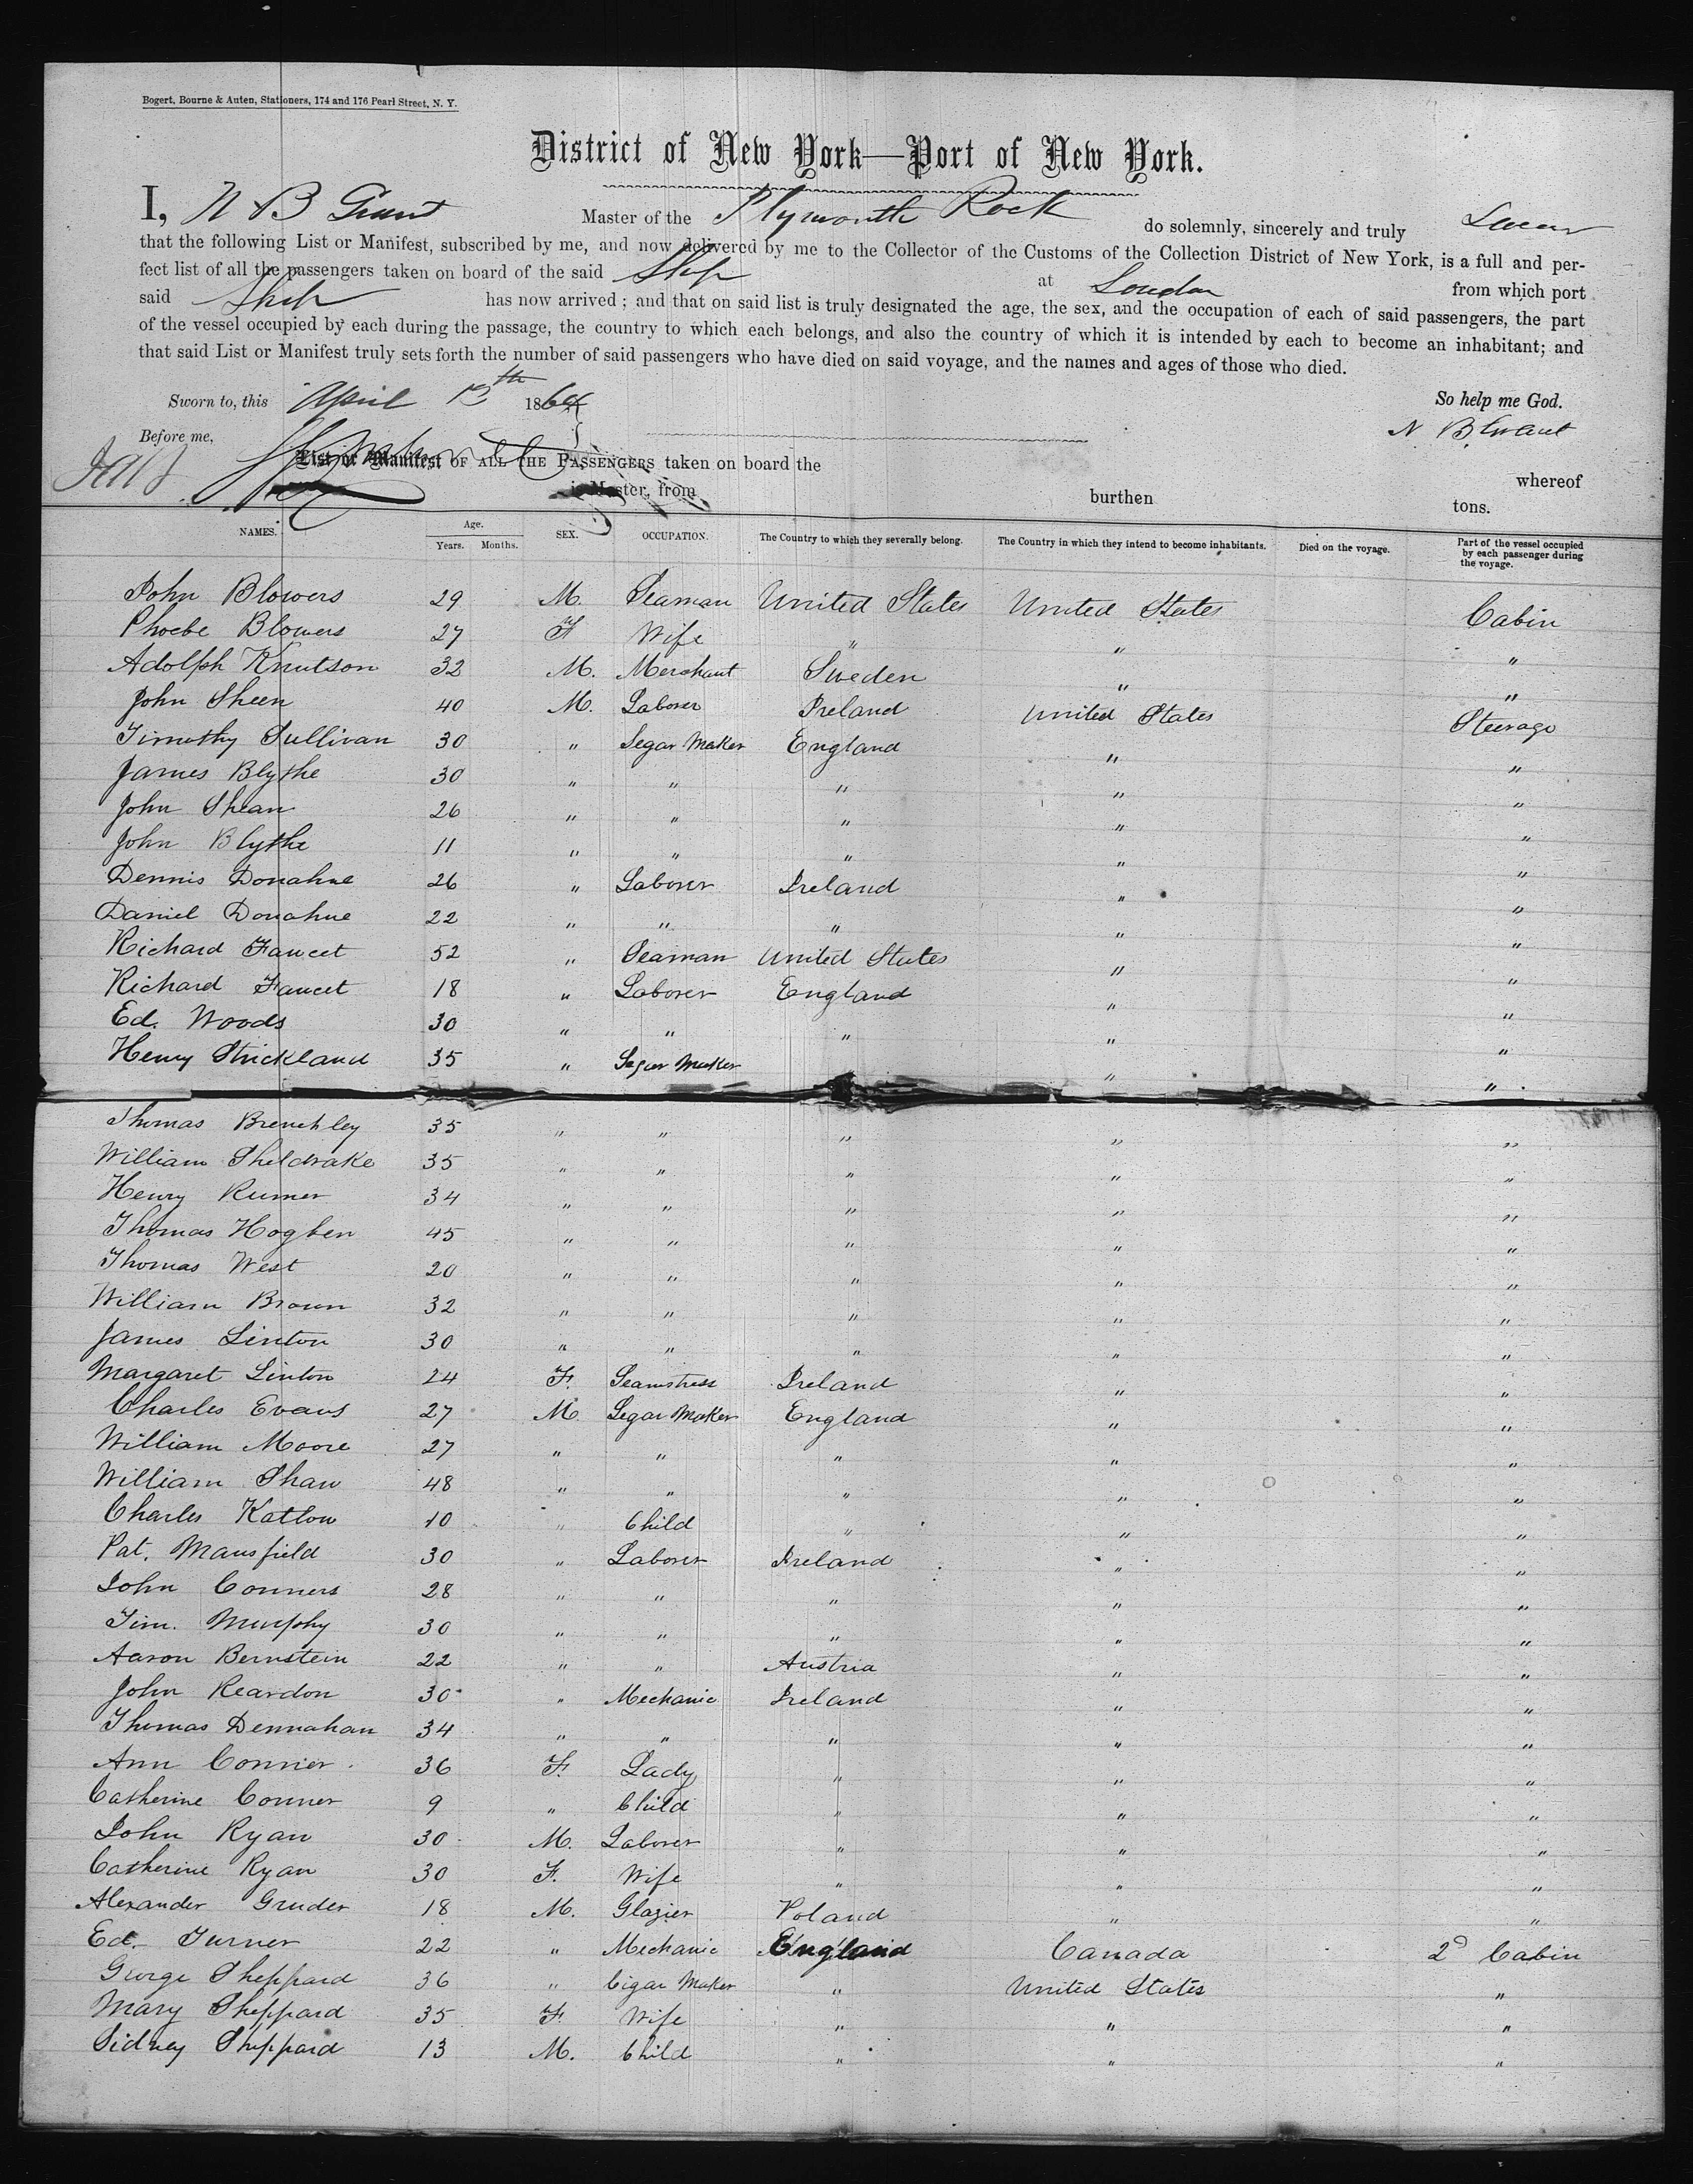 Bogert, Bourne & Auten, Stationers, 174 and 176 Pearl Street, N. Y.
District of New York—Port of New York.
I, N B Grant Master of the Plymouth Rock do solemnly, sincerely and truly Swear
that the following List or Manifest, subscribed by me, and now delivered by me to the Collector of the Customs of the Collection District of New York, is a full and per-
fect list of all the passengers taken on board of the said Ship at London from which port
said Ship has now arrived; and that on said list is truly designated the age, the sex, and the occupation of each of said passengers, the part
of the vessel occupied by each during the passage, the country to which each belongs, and also the country of which it is intended by each to become an inhabitant; and
that said List or Manifest truly sets forth the number of said passengers who have died on said voyage, and the names and ages of those who died.
Sworn to, this April th 186 So help me God.
Before me, N B Grant
List or Manifest OF ALL THE PASSENGERS taken on board the whereof
is Master, from burthen tons.
NAMES. Age. Years. Months. SEX. OCCUPATION. The Country to which they severally belong. The Country in which they intend to become inhabitants. Died on the voyage. Part of the vessel occupied by each passenger during the voyage.
John Blowers 29 M. Seaman United States United States Cabin
Phoebe Blowers 27 F Wife " " "
Adolph Knutson 32 M. Merchant Sweden " "
John Sheen 40 M. Laborer Ireland United States Steerage
Timothy Sullivan 30 " Segar Maker England " "
James Blythe 30 " " " " "
John Shean 26 " " " " "
John Blythe 11 " " " " "
Dennis Donahue 26 " Laborer Ireland " "
Daniel Donahue 22 " " " " "
Richard Fawcet 52 " Seaman United States " "
Richard Fawcet 18 " Laborer England " "
Ed. Woods 30 " " " " "
Henry Strickland 35 " Segar Maker " "
Thomas Brenchley 35 " " " " "
William Sheldrake 35 " " " " "
Henry Rumer 34 " " " " "
Thomas Hogben 45 " " " " "
Thomas West 20 " " " " "
William Brown 32 " " " " "
James Linton 30 " " " " "
Margaret Linton 24 F. Seamstress Ireland " "
Charles Evans 27 M. Segar Maker England " "
William Moore 27 " " " " "
William Shaw 48 " " " " "
Charles Katlow 10 " Child " " "
Pat. Mansfield 30 " Laborer Ireland " "
John Conners 28 " " " " "
Tim. Murphy 30 " " " " "
Aaron Bernstein 22 " " Austria " "
John Reardon 30 " Mechanic Ireland " "
Thomas Dennahan 34 " " " " "
Ann Conner 36 F. Lady " " "
Catherine Conner 9 " Child " " "
John Ryan 30 M. Laborer " " "
Catherine Ryan 30 F. Wife " " "
Alexander Gruder 18 M. Glazier Poland " "
Ed. Turner 22 " Mechanic England Canada 2d Cabin
George Sheppard 36 " Cigar Maker " United States "
Mary Sheppard 35 F. Wife " " "
Sidney Sheppard 13 M. Child " " "